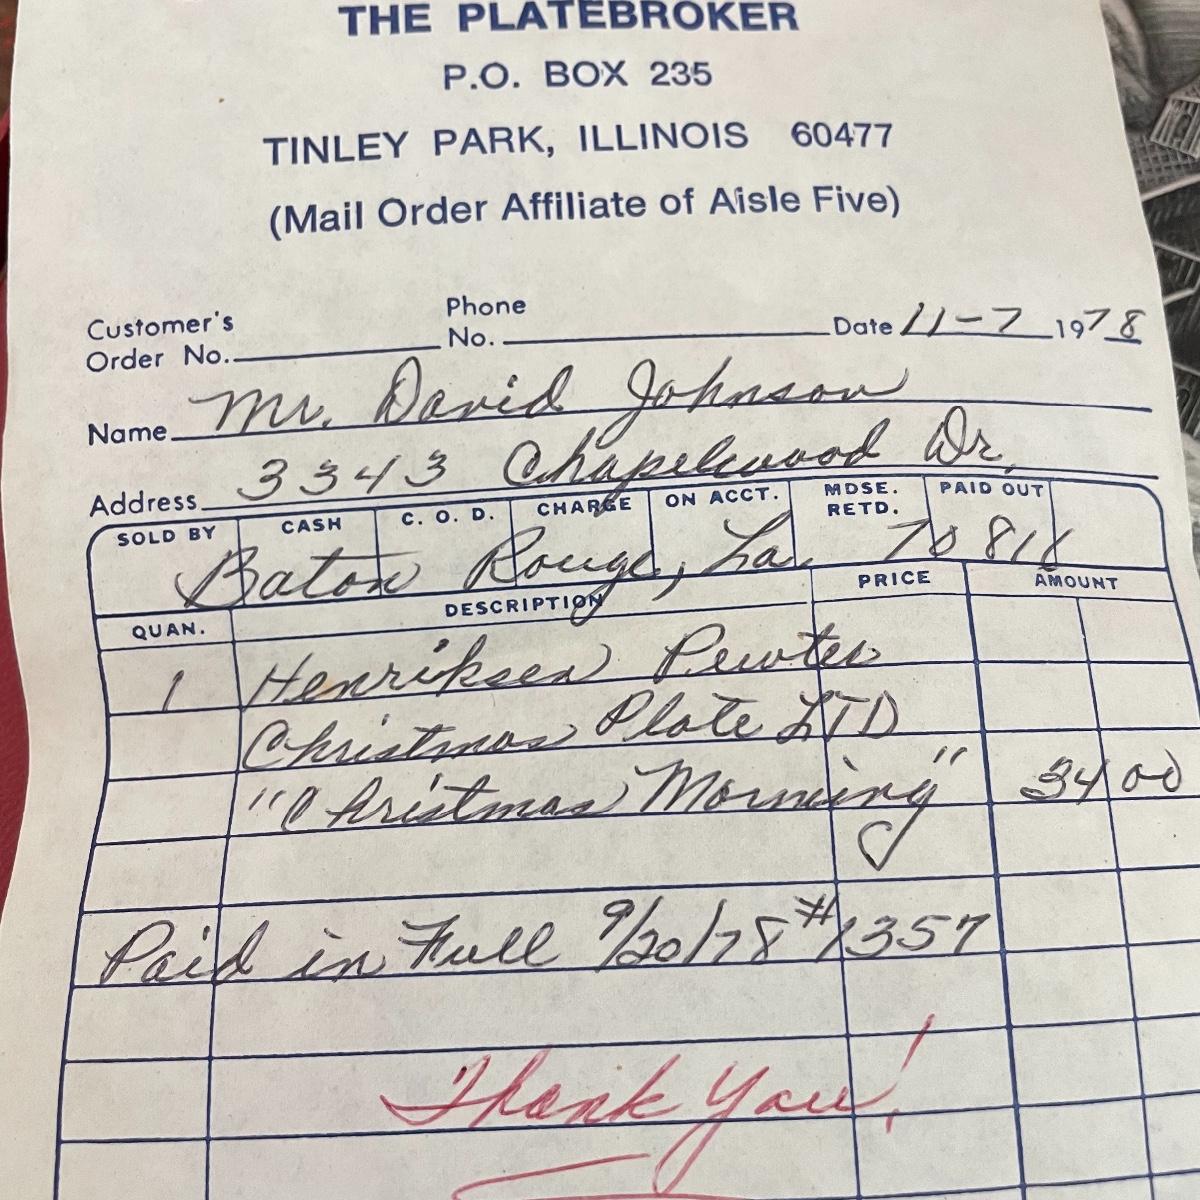 THE PLATEBROKER
P.O. BOX 235
TINLEY PARK, ILLINOIS 60477
(Mail Order Affiliate of Aisle Five)
Customer's Order No. Phone No. Date 11-7 1978
Name Mr. David Johnson
Address 3343 Chapelwood Dr.
SOLD BY CASH C. O. D. CHARGE ON ACCT. MDSE. RETD. PAID OUT
Baton Rouge, La. 70816
QUAN. DESCRIPTION PRICE AMOUNT
1 Henriksen Pewter
Christmas Plate LTD
"Christmas Morning" 34 00
Paid in Full 9/20/78 #1357
Thank You!